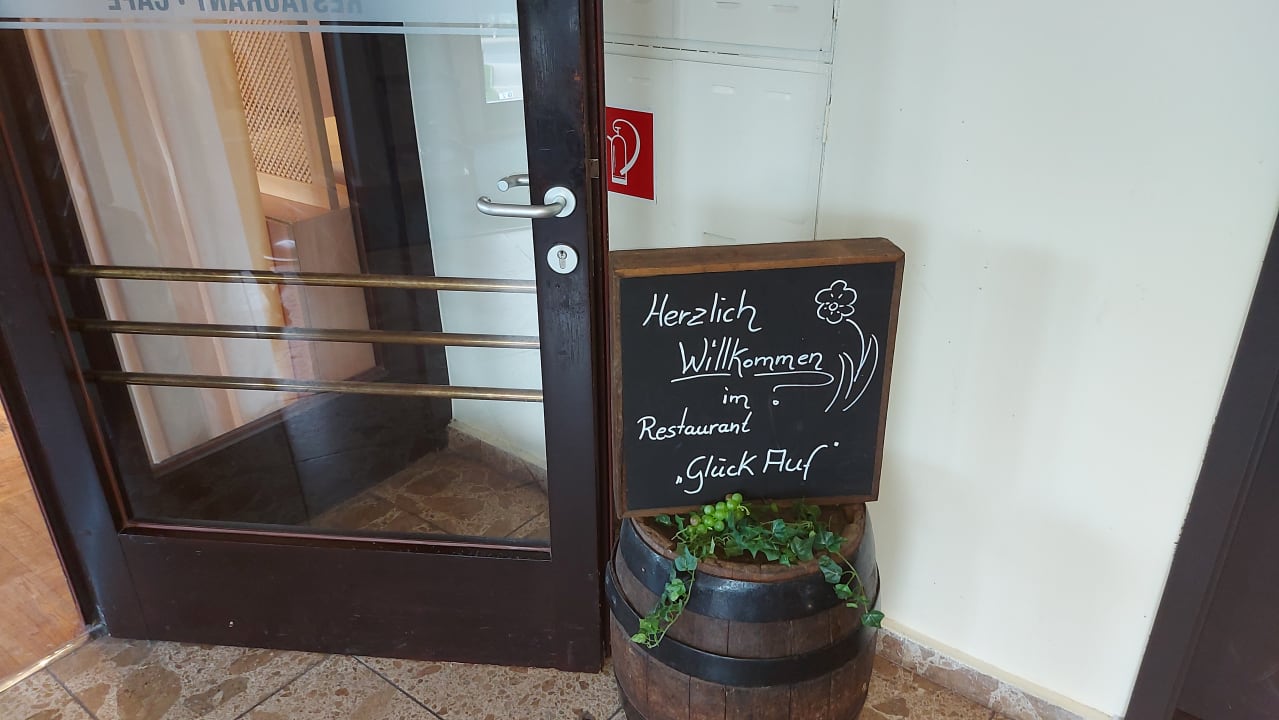 RESTAURANT · CAFE
Herzlich
Willkommen
im
Restaurant
„Glück Auf"